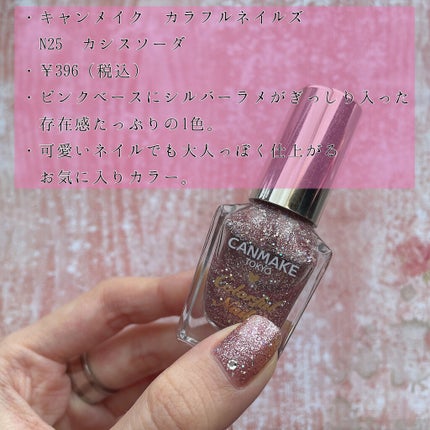 ・キャンメイク　カラフルネイルズ
N25　カシスソーダ
・￥396（税込）
・ピンクベースにシルバーラメがぎっしり入った
存在感たっぷりの1色。
・可愛いネイルでも大人っぽく仕上がる
お気に入りカラー。
CANMAKE
TOKYO
Colorful
Nails